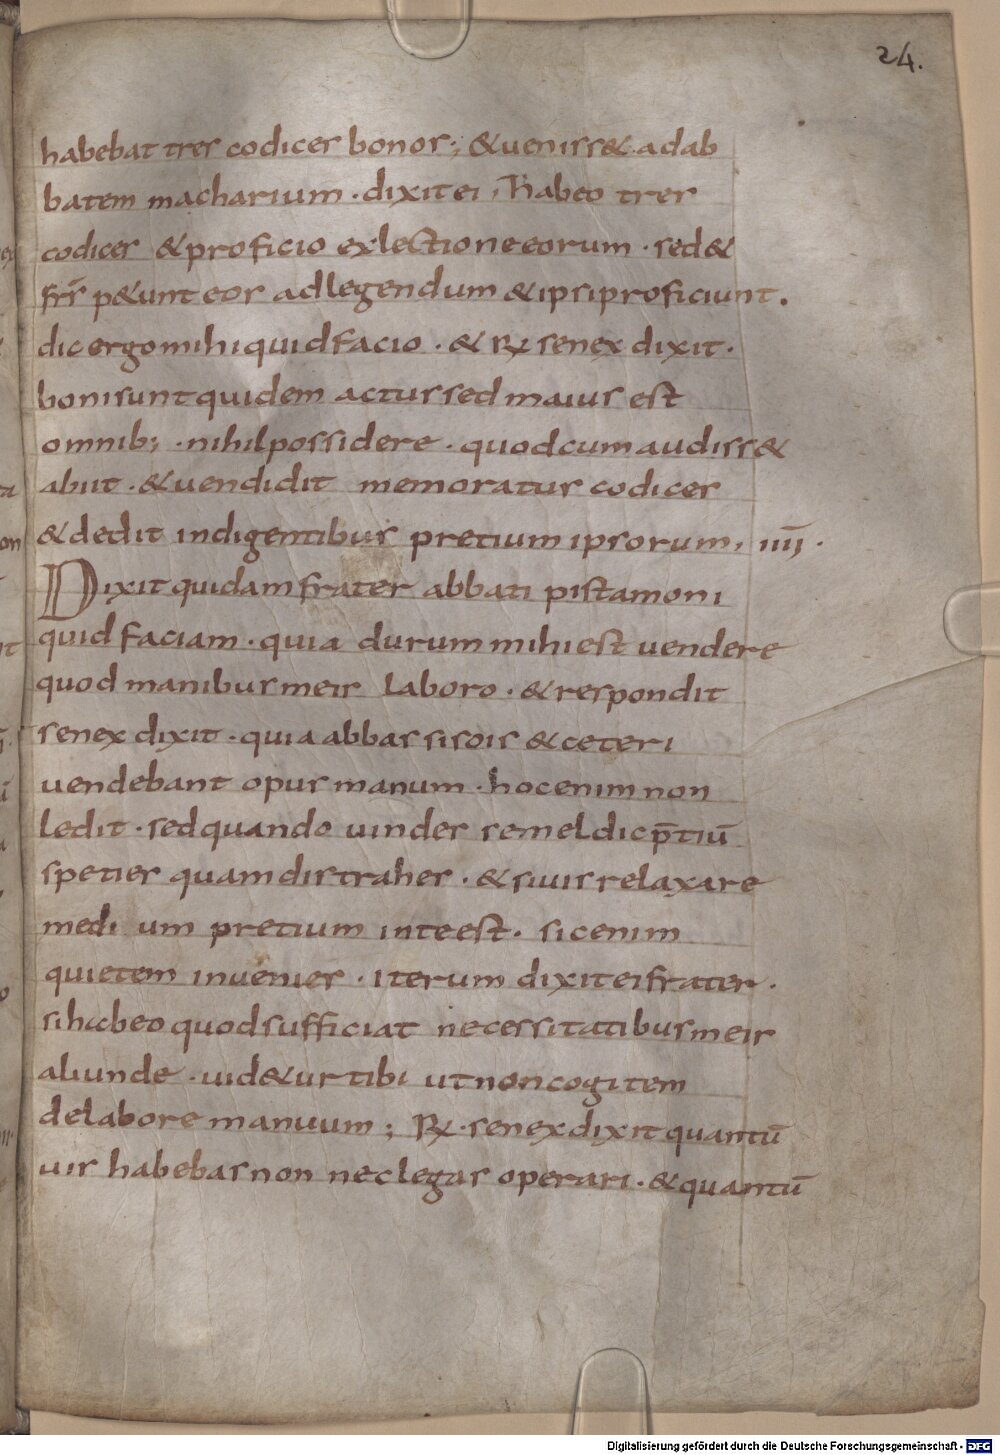 24.
habebat tres codices bonos; & ueniss& adab
batem macharium · dixit ei, habeo tres
codices & proficio ex lectione eorum · sed &
frs̄ p&unt eos ad legendum & ipsi proficiunt.
dic ergo mihi quid facio · & R senex dixit ·
boni sunt quidem actus sed maius est
omnib; · nihil possidere · quod cum audiss&
abiit · & uendidit memoratus codices
& dedit indigentibus pretium ipsorum, IIIĪ ·
Dixit quidam frater abbati pistamoni
quid faciam · quia durum mihi est uendere
quod manibus meis laboro · & respondit
senex dixit · quia abbas sisois & ceteri
uendebant opus manum · hoc enim non
ledit · sed quando uindes semel dic p̄tiū
speties quam distrahes · & si uis relaxare
medi um pretium inte est · sic enim
quietem inuenies · Iterum dixit ei frater ·
si habeo quod sufficiat necessitatibus meis
aliunde · uid&ur tibi ut non cogitem
de labore manuum; R · senex dixit quantū
uis habebas non neclegas operari · & quantū
Digitalisierung gefördert durch die Deutsche Forschungsgemeinschaft - DFG